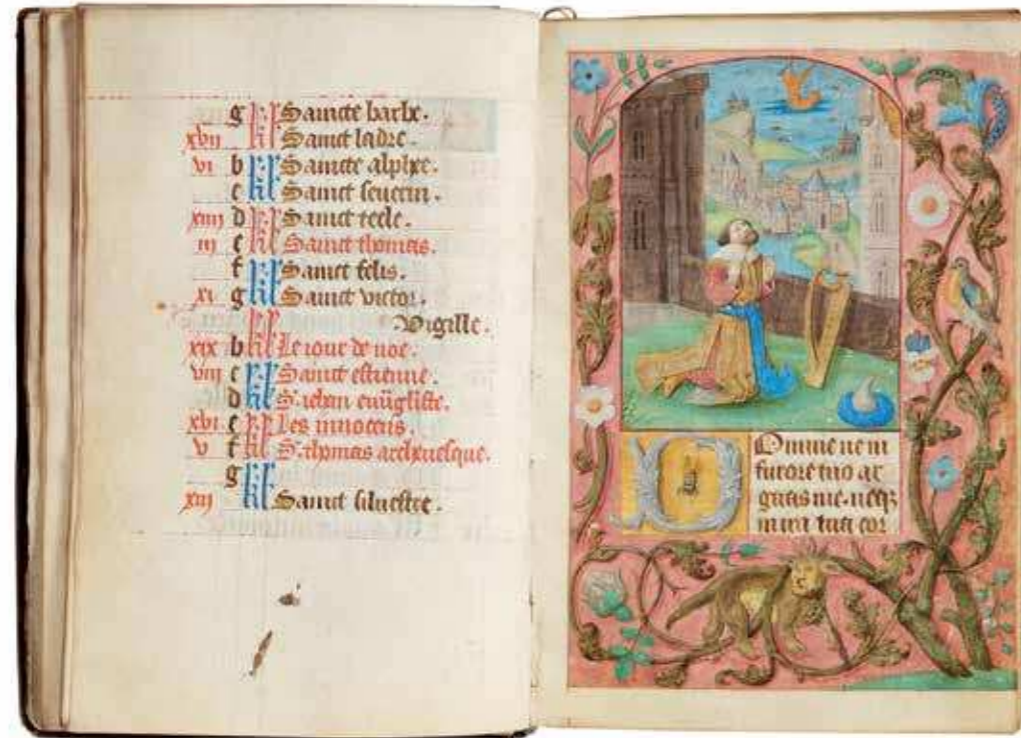 g kł Saincte barbe.
xvii kł Sainct ladre.
vi b kł Saincte alphee.
c kł Sainct seuerin.
xiiii d kł Sainct tecle.
iii e kł Sainct thomas.
f kł Sainct felis.
xi g kł Sainct victor.
kł Vigille.
xix b kł Le iour de noe.
viii c kł Sainct estienne.
d kł S. iehan euãgliste.
xvi e kł Les innocens.
v f kł S. thomas archeuesque.
g kł
xiii Sainct siluestre.
Domine ne in
furore tuo ar
guas me. neqz
in ira tua cor